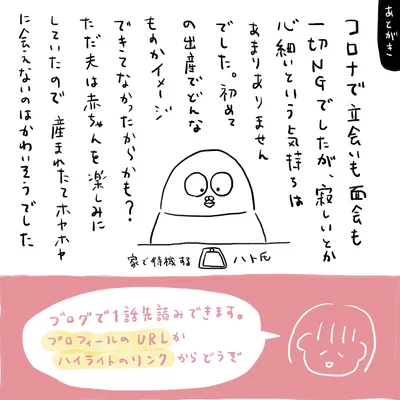 あとがき
コロナで立会いも面会も
一切NGでしたが、寂しいとか
心細いという気持ちは
あまりありません
でした。初めて
の出産でどんな
ものかイメージ
できてなかったからかも?
ただ夫は赤ちゃんを楽しみに
していたので産まれたてホヤホヤ
に会えないのはかわいそうでした
家で待機する ハト氏
ブログで1話先読みできます。
プロフィールのURLか
ハイライトのリンクからどうぞ